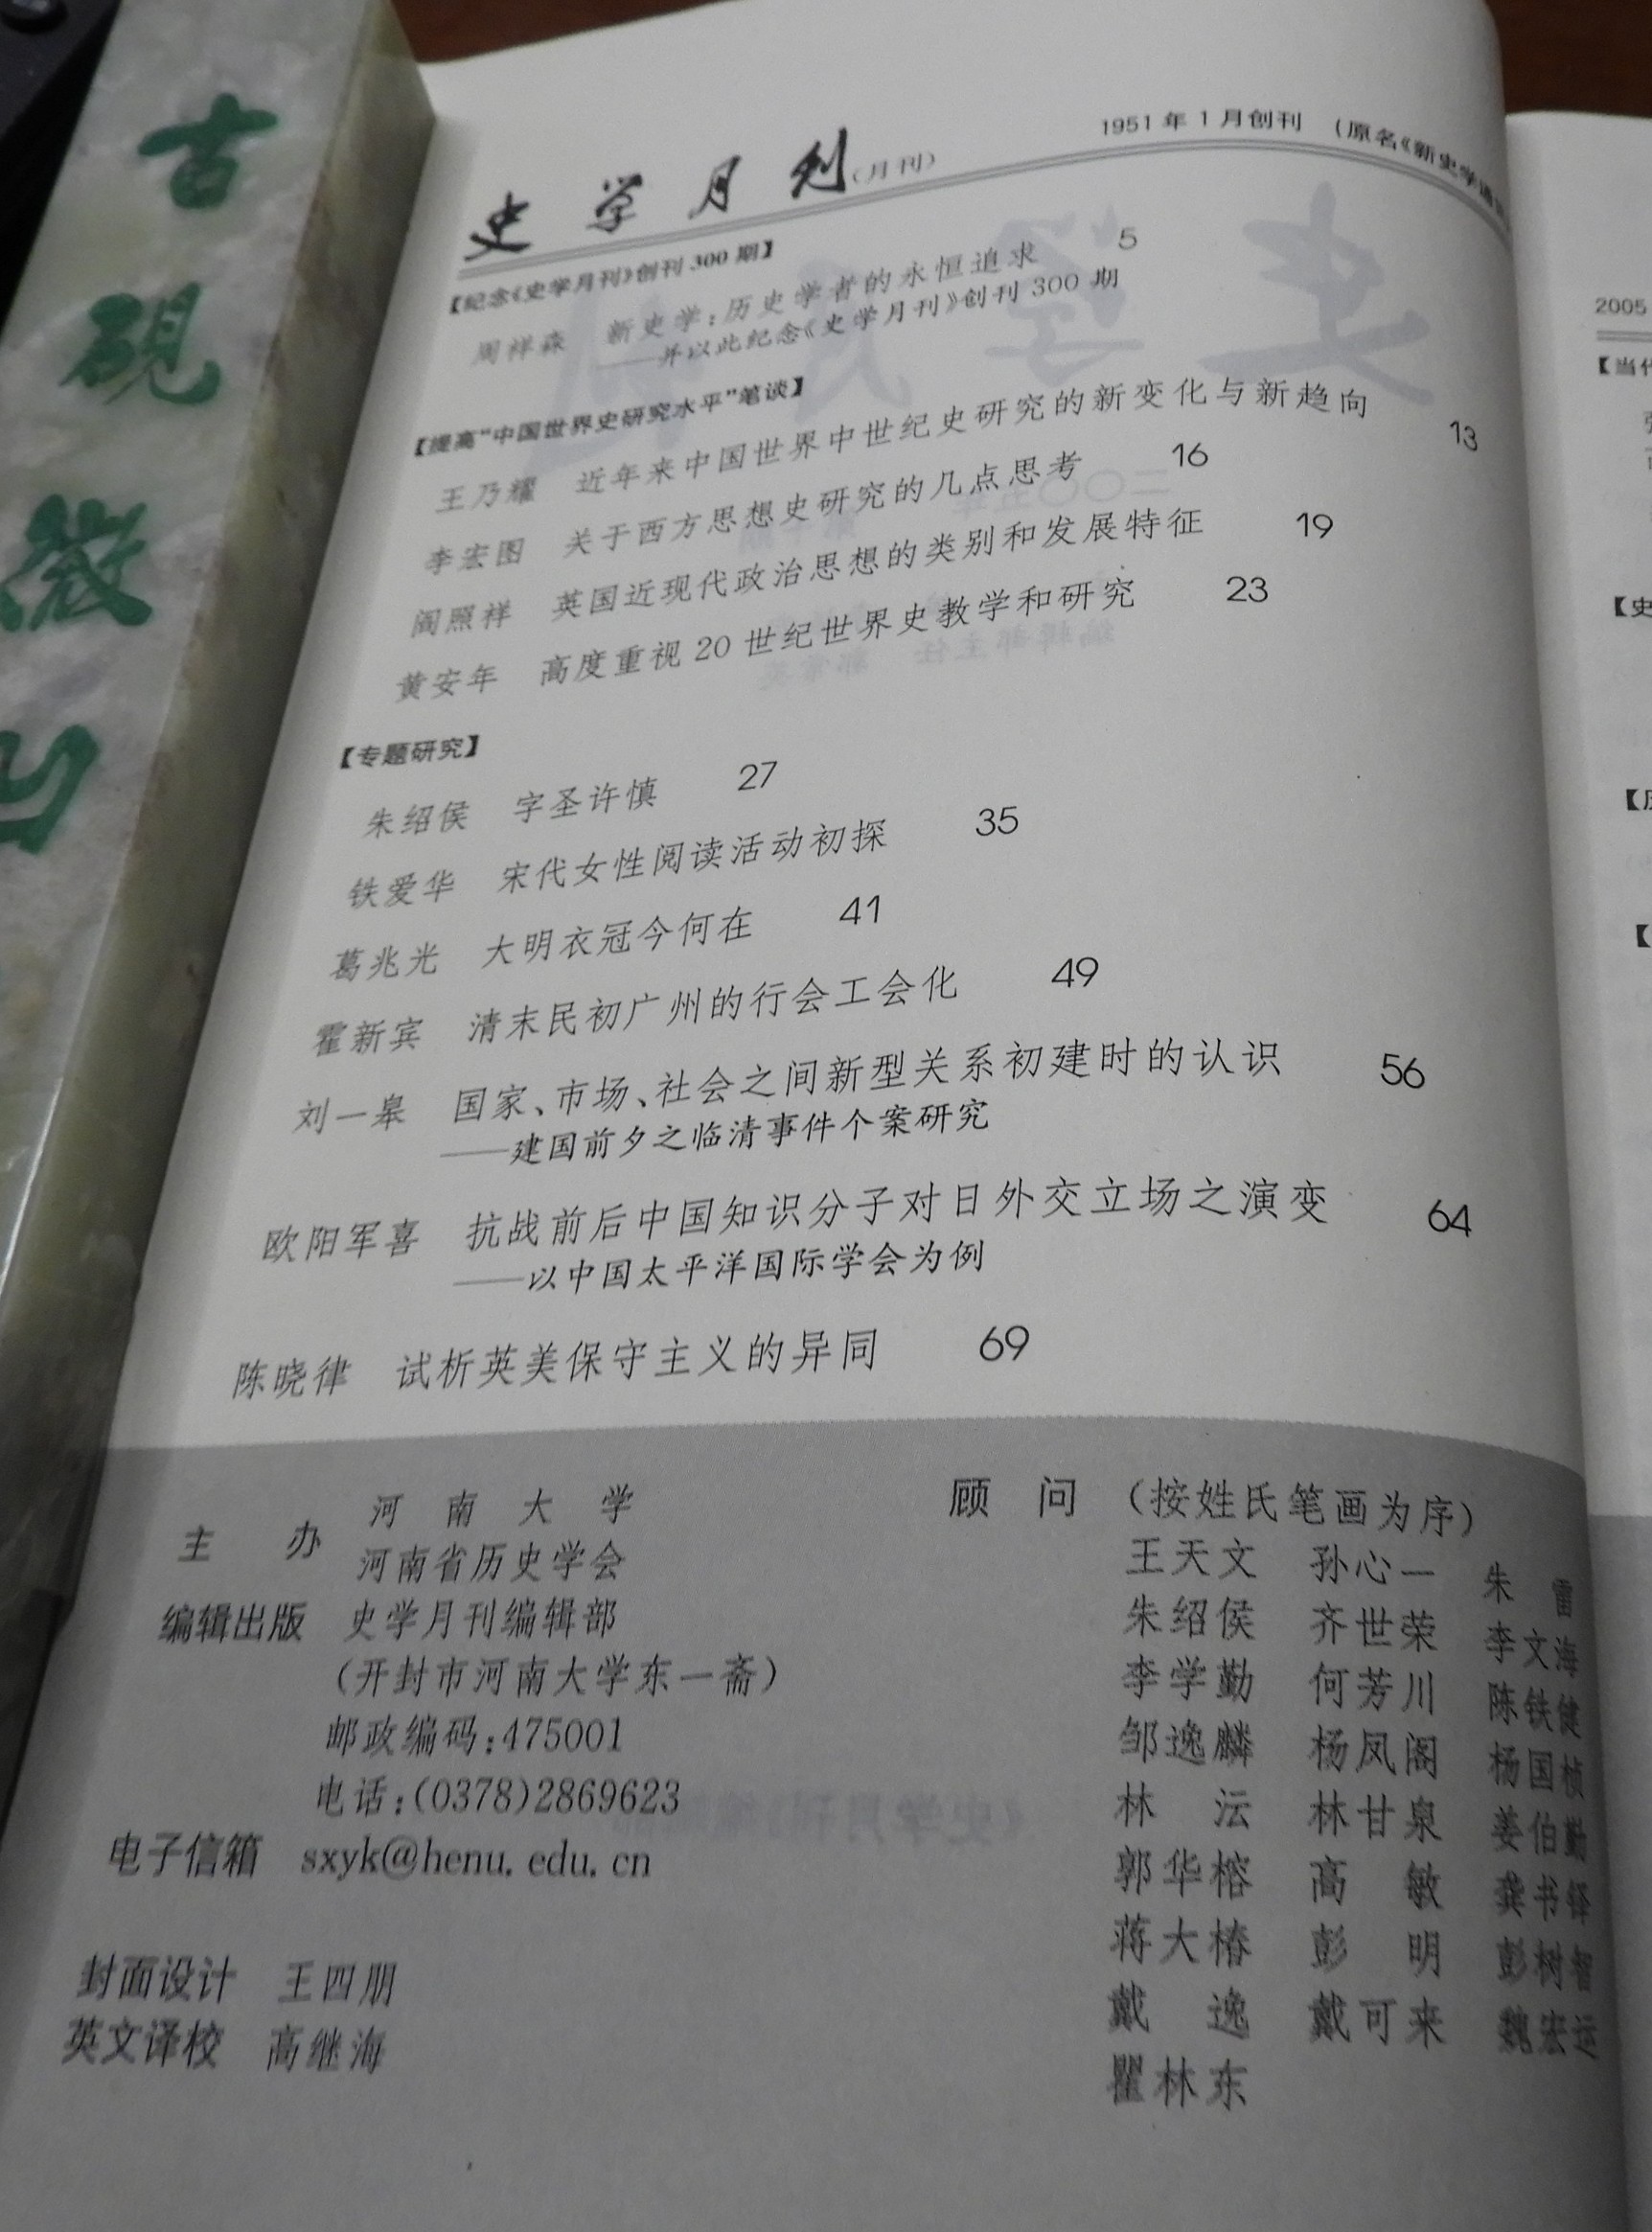 古砚微凹
史学月刊(月刊)
1951年1月创刊 (原名《新史学通
【纪念《史学月刊》创刊300期】
周祥森 新史学:历史学者的永恒追求 5
——并以此纪念《史学月刊》创刊300期
【提高“中国世界史研究水平”笔谈】
王乃耀 近年来中国世界中世纪史研究的新变化与新趋向 13
李宏图 关于西方思想史研究的几点思考 16
阎照祥 英国近现代政治思想的类别和发展特征 19
黄安年 高度重视20世纪世界史教学和研究 23
【专题研究】
朱绍侯 字圣许慎 27
铁爱华 宋代女性阅读活动初探 35
葛兆光 大明衣冠今何在 41
霍新宾 清末民初广州的行会工会化 49
刘一皋 国家、市场、社会之间新型关系初建时的认识 56
——建国前夕之临清事件个案研究
欧阳军喜 抗战前后中国知识分子对日外交立场之演变 64
——以中国太平洋国际学会为例
陈晓律 试析英美保守主义的异同 69
主办 河南大学
河南省历史学会
编辑出版 史学月刊编辑部
(开封市河南大学东一斋)
邮政编码:475001
电话:(0378)2869623
电子信箱 sxyk@henu.edu.cn
封面设计 王四朋
英文译校 高继海
顾问 (按姓氏笔画为序)
王天文 孙心一 朱雷
朱绍侯 齐世荣 李文海
李学勤 何芳川 陈铁健
邹逸麟 杨凤阁 杨国桢
林沄 林甘泉 姜伯勤
郭华榕 高敏 龚书铎
蒋大椿 彭明 彭树智
戴逸 戴可来 魏宏运
瞿林东
2005
【当代
【史